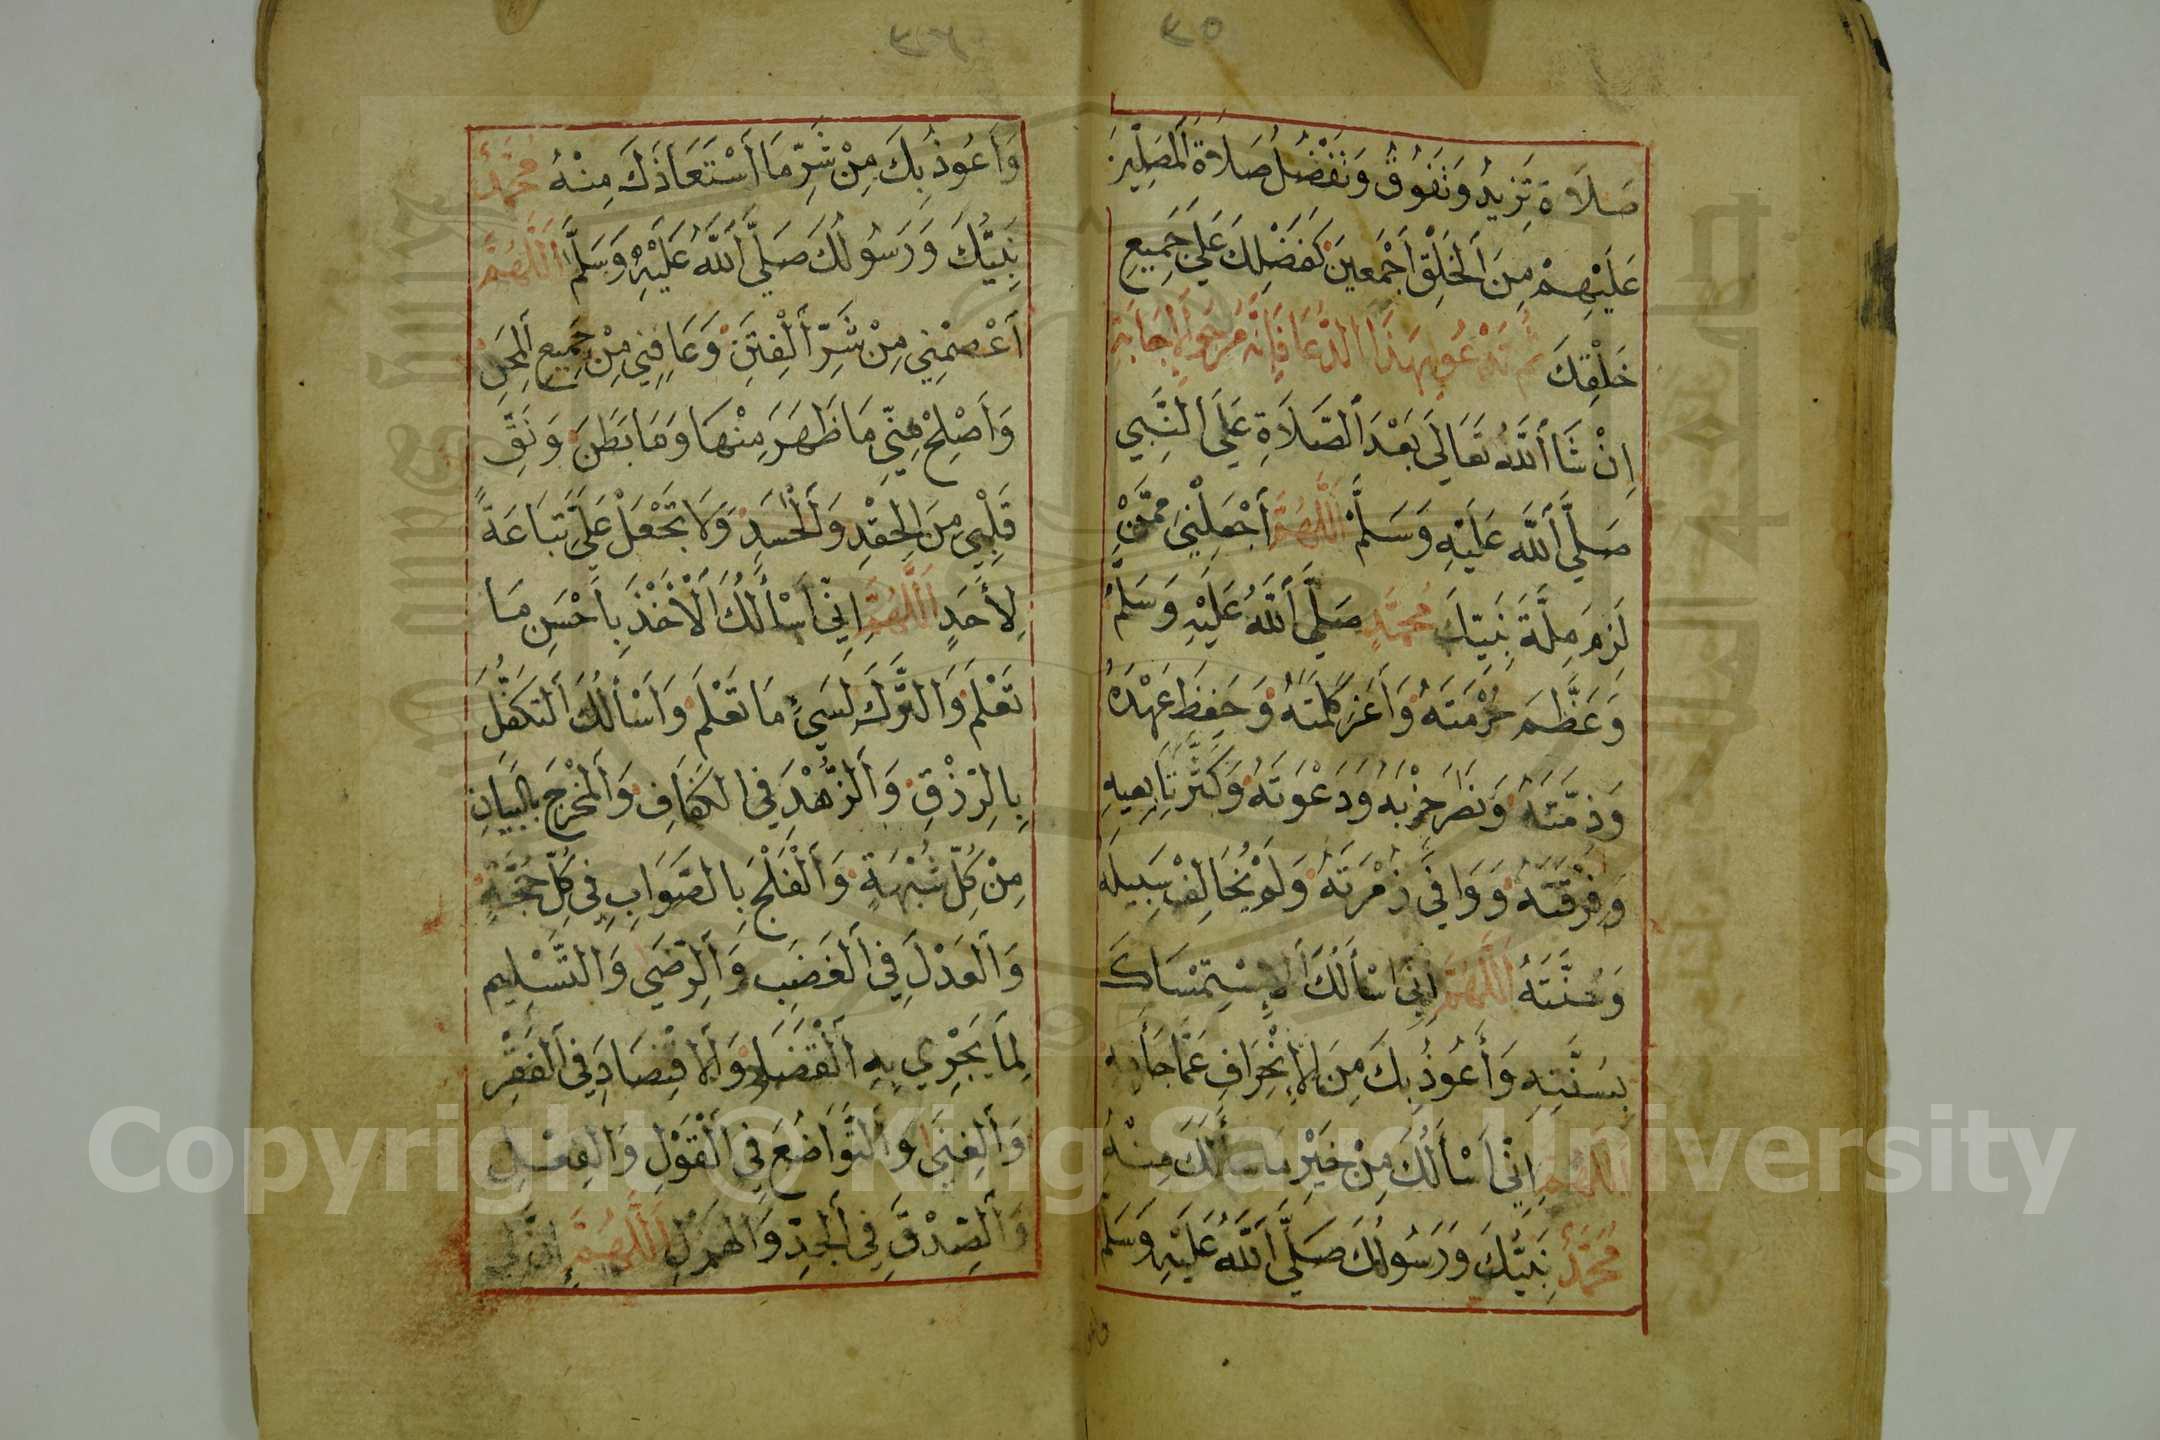 صَلَاةً تَزِيدُ وَتَفُوقُ وَتَفْضُلُ صَلَاةَ الْمُصَلِّينَ
عَلَيْهِمْ مِنَ الْخَلْقِ أَجْمَعِينَ كَفَضْلِكَ عَلَى جَمِيعِ
خَلْقِكَ ثُمَّ تَدْعُو بِهَذَا الدُّعَا فَإِنَّهُ مَرْجُوُّ الْإِجَابَةِ
إِنْ شَا اللَّهُ تَعَالَى بَعْدَ الصَّلَاةِ عَلَى النَّبِيِّ
صَلَّى اللَّهُ عَلَيْهِ وَسَلَّمْ اللَّهُمَّ اجْعَلْنِي مِمَّنْ
لَزِمَ مِلَّةَ نَبِيِّكَ مُحَمَّدٍ صَلَّى اللَّهُ عَلَيْهِ وَسَلَّمْ
وَعَظَّمَ حُرْمَتَهُ وَأَعَزَّ كَلِمَتَهُ وَحَفِظَ عَهْدَهُ
وَذِمَّتَهُ وَنَصَرَ حِزْبَهُ وَدَعْوَتَهُ وَكَثَّرَ تَابِعِيهِ
وَفِرْقَتَهُ وَوَافَى زُمْرَتَهُ وَلَمْ يُخَالِفْ سَبِيلَهُ
وَسُنَّتَهُ اللَّهُمَّ إِنِّي أَسْأَلُكَ الْإِسْتِمْسَاكَ
بِسُنَّتِهِ وَأَعُوذُ بِكَ مِنَ الْإِنْحِرَافِ عَمَّا جَاءَ بِهِ
اللَّهُمَّ إِنِّي أَسْأَلُكَ مِنْ خَيْرِ مَا سَأَلَكَ مِنْهُ
مُحَمَّدٌ نَبِيُّكَ وَرَسُولُكَ صَلَّى اللَّهُ عَلَيْهِ وَسَلَّمْ
وَأَعُوذُ بِكَ مِنْ شَرِّ مَا أَسْتَعَاذَكَ مِنْهُ مُحَمَّدٌ
نَبِيُّكَ وَرَسُولُكَ صَلَّى اللَّهُ عَلَيْهِ وَسَلَّمْ اللَّهُمَّ
أَعْصِمْنِي مِنْ شَرِّ الْفِتَنِ وَعَافِنِي مِنْ جَمِيعِ الْمِحَنِ
وَأَصْلِحْ مِنِّي مَا ظَهَرَ مِنْهَا وَمَا بَطَنَ وَنَقِّ
قَلْبِي مِنَ الْحِقْدِ وَالْحَسَدِ وَلَا تَجْعَلْ عَلَيَّ تَبَاعَةً
لِأَحَدٍ اللَّهُمَّ إِنِّي أَسْأَلُكَ الْأَخْذَ بِأَحْسَنِ مَا
تَعْلَمُ وَالتَّرْكَ لِسَيِّءِ مَا تَعْلَمُ وَأَسْأَلُكَ التَّكَفُّلَ
بِالرِّزْقِ وَالزُّهْدَ فِي الْكَفَافِ وَالْمَخْرَجَ بِالْبَيَانِ
مِنْ كُلِّ شُبْهَةٍ وَالْفَلْجَ بِالصَّوَابِ فِي كُلِّ حُجَّةٍ
وَالْعَدْلَ فِي الْغَضَبِ وَالرِّضَى وَالتَّسْلِيمَ
لِمَا يَجْرِي بِهِ الْقَضَاءُ وَالْإِقْتِصَادَ فِي الْفَقْرِ
وَالْغِنَى وَالتَّوَاضُعَ فِي الْقَوْلِ وَالْفِعْلِ
وَالصِّدْقَ فِي الْجِدِّ وَالْهَزْلِ اللَّهُمَّ إِنَّ لِي
Copyright © King Saud University